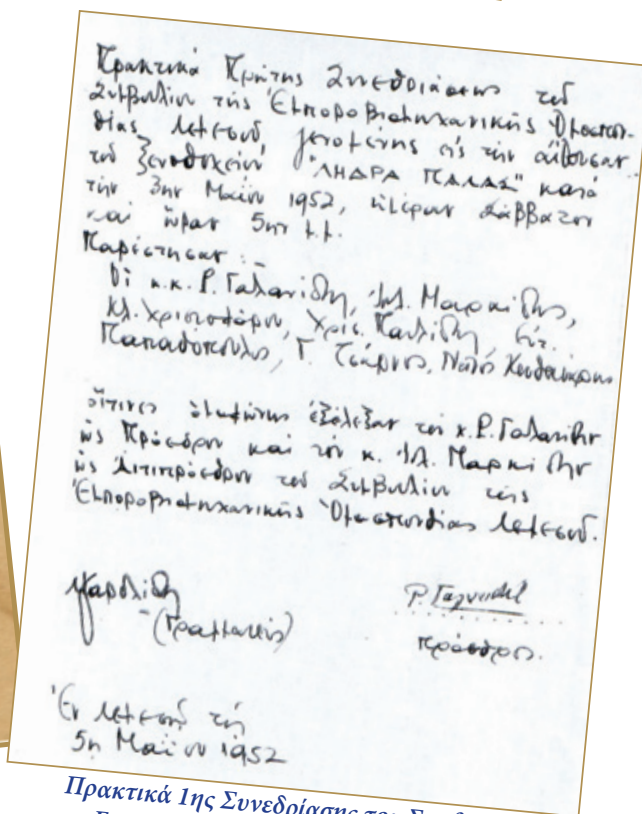 Πρακτικά Πρώτης Συνεδριάσεως τοῦ
Συμβουλίου τῆς Ἐμποροβιομηχανικῆς Ὁμοσπον-
δίας Λεμεσοῦ γενομένης εἰς τὴν αἴθουσαν
τοῦ ξενοδοχείου "ΛΗΔΡΑ ΠΑΛΑΣ" κατὰ
τὴν 3ην Μαΐου 1952, ἡμέραν Σάββατον
καὶ ὥραν 5ην μ.μ.
Παρέστησαν :-
Οἱ κ.κ. Ρ. Γαλανίδης, Μαρκίδης,
Κλ. Χριστοφόρου, Χρισ. Παυλίδης,
Παπαδόπουλος, Γ.
οἵτινες ὁμοφώνως ἐξέλεξαν τὸν κ. Ρ. Γαλανίδην
ὡς Πρόεδρον καὶ τὸν κ. Μαρκίδην
ὡς Ἀντιπρόεδρον τοῦ Συμβουλίου τῆς
Ἐμποροβιομηχανικῆς Ὁμοσπονδίας Λεμεσοῦ.
(Γραμματεύς)
Πρόεδρος.
Ἐν Λεμεσῷ τῇ
5η Μαΐου 1952
Πρακτικά 1ης Συνεδρίασης του